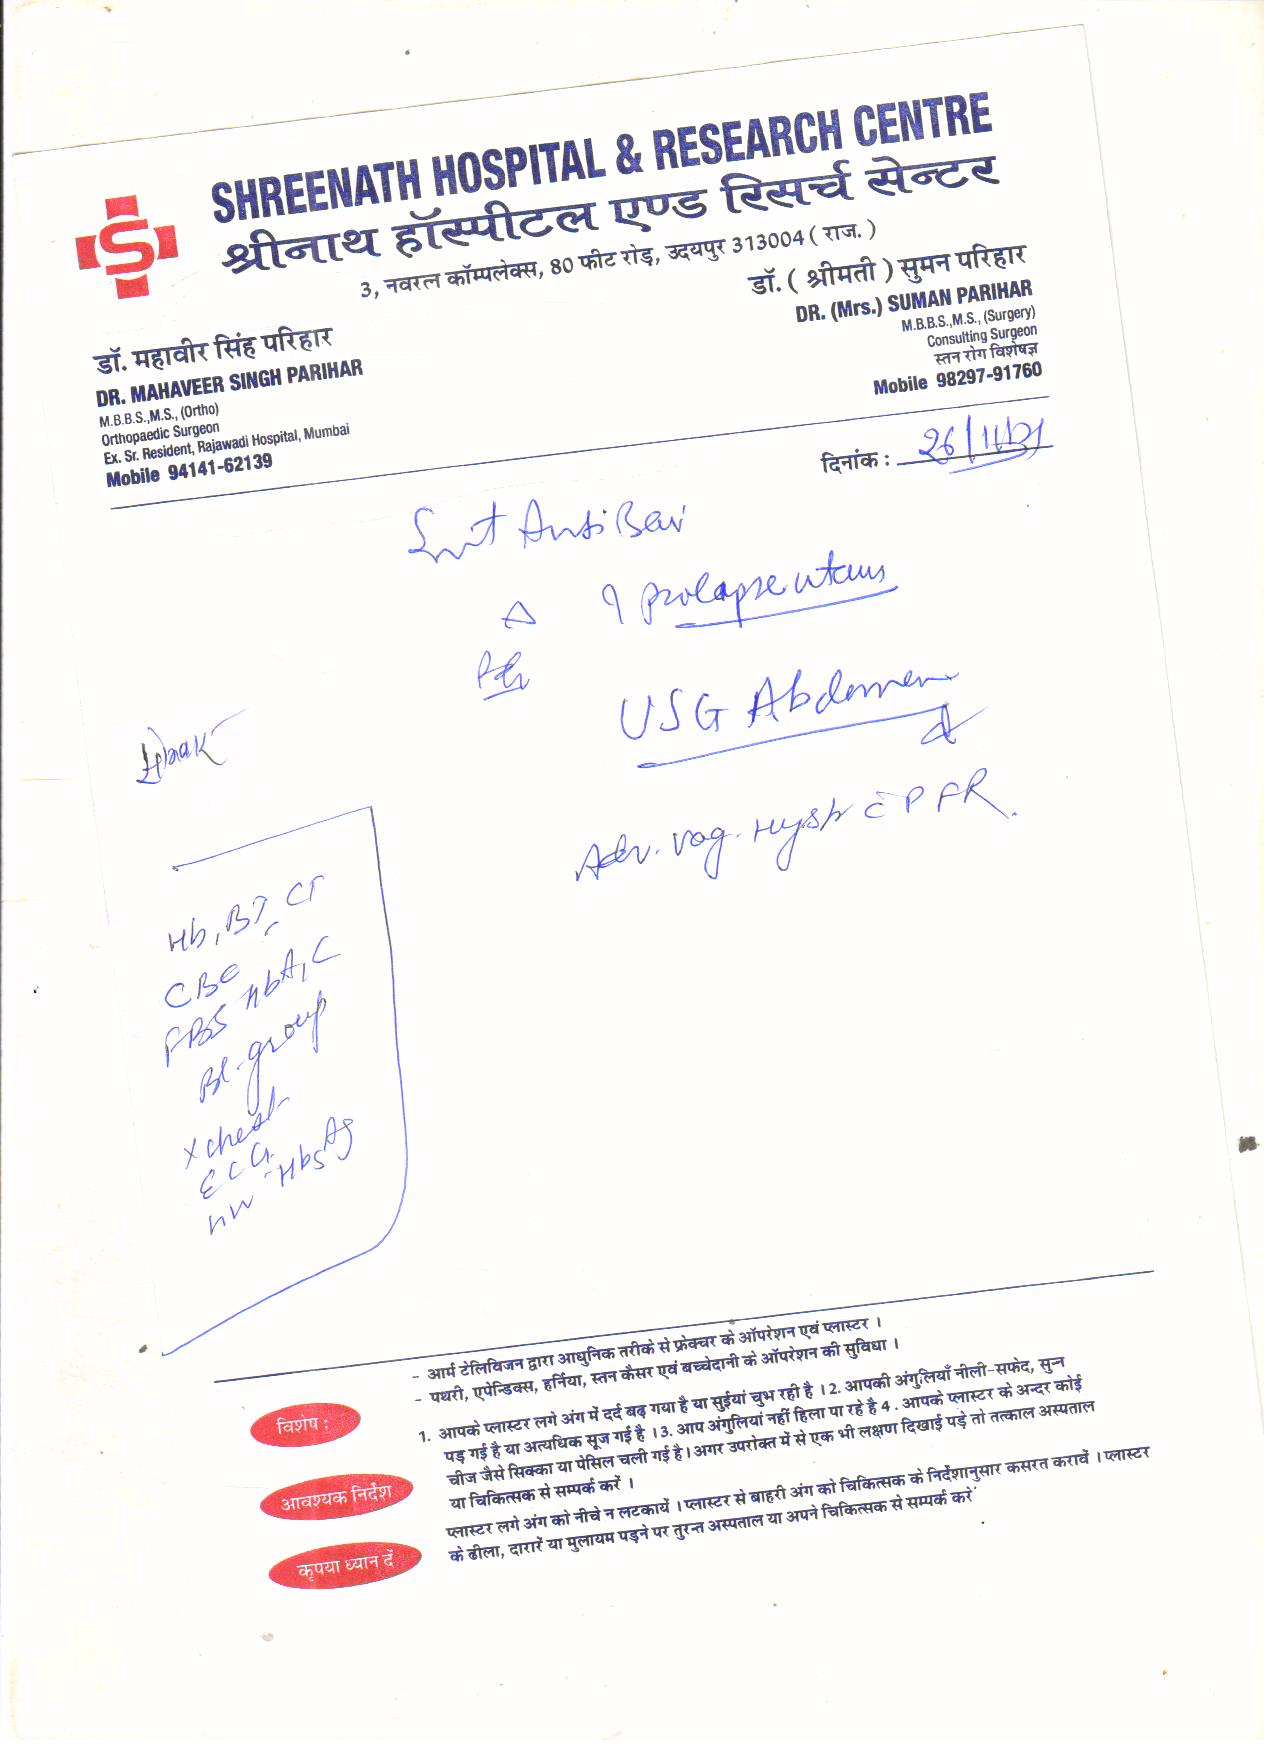 SHREENATH HOSPITAL & RESEARCH CENTRE
श्रीनाथ हॉस्पीटल एण्ड रिसर्च सेन्टर
3, नवरत्न कॉम्पलेक्स, 80 फीट रोड़, उदयपुर 313004 ( राज. )
डॉ. महावीर सिंह परिहार
DR. MAHAVEER SINGH PARIHAR
M.B.B.S.,M.S., (Ortho)
Orthopaedic Surgeon
Ex. Sr. Resident, Rajawadi Hospital, Mumbai
Mobile 94141-62139
डॉ. ( श्रीमती ) सुमन परिहार
DR. (Mrs.) SUMAN PARIHAR
M.B.B.S.,M.S., (Surgery)
Consulting Surgeon
स्तन रोग विशेषज्ञ
Mobile 98297-91760
दिनांक : 26/11/21
Smt Bai
Δ prolapse uterus
USG Abdomen
Adv. Vag. Hyst c PFR.
Hb, BT, CT
CBC
FBS HbA1C
Bl. group
X chest
ECG
HIV HbsAg
- आर्म टेलिविजन द्वारा आधुनिक तरीके से फ्रेक्चर के ऑपरेशन एवं प्लास्टर ।
- पथरी, एपेन्डिक्स, हर्निया, स्तन कैसर एवं बच्चेदानी के ऑपरेशन की सुविधा ।
विशेष :
1. आपके प्लास्टर लगे अंग में दर्द बढ़ गया है या सुईयां चुभ रही है । 2. आपकी अंगुलियाँ नीली-सफेद, सुन्न
पड़ गई है या अत्यधिक सूज गई है । 3. आप अंगुलियां नहीं हिला पा रहे है 4 . आपके प्लास्टर के अन्दर कोई
चीज जैसे सिक्का या पेंसिल चली गई है। अगर उपरोक्त में से एक भी लक्षण दिखाई पड़े तो तत्काल अस्पताल
या चिकित्सक से सम्पर्क करें ।
आवश्यक निर्देश
प्लास्टर लगे अंग को नीचे न लटकायें । प्लास्टर से बाहरी अंग को चिकित्सक के निर्देशानुसार कसरत करावें । प्लास्टर
के ढीला, दारारें या मुलायम पड़ने पर तुरन्त अस्पताल या अपने चिकित्सक से सम्पर्क करें
कृपया ध्यान दें